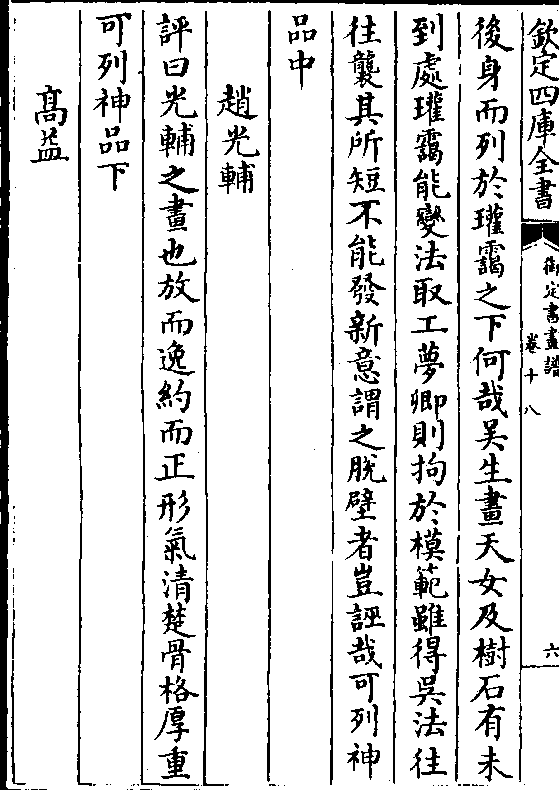 欽定四庫全書
御定書畫譜
卷十八
六
後身而列於瓘靄之下何哉吴生畫天女及樹石有未
到處瓘靄能變法取工夢卿則拘於模範雖得吳法往
往襲其所短不能發新意謂之脱壁者豈誣哉可列神
品中
趙光輔
評曰光輔之畫也放而逸約而正形氣清楚骨格厚重
可列神品下
髙益